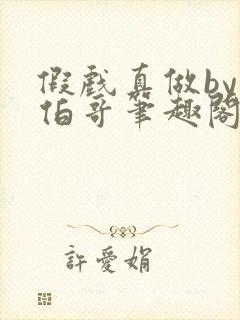 假戲真做by
伯哥筆趣閣
許愛娟